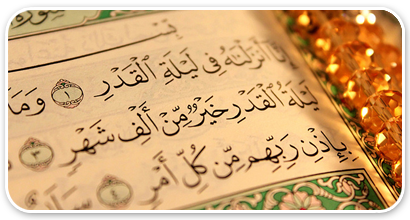 إِنَّا أَنزَلْنَٰهُ فِى لَيْلَةِ ٱلْقَدْرِ ١ وَمَا
لَيْلَةُ ٱلْقَدْرِ خَيْرٌ مِّنْ أَلْفِ شَهْرٍ ٣
بِإِذْنِ رَبِّهِم مِّن كُلِّ أَمْرٍ ٤